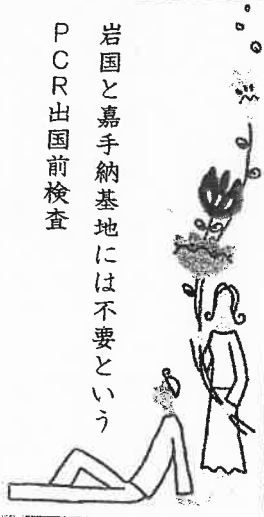 岩国と嘉手納基地には不要という
PCR出国前検査